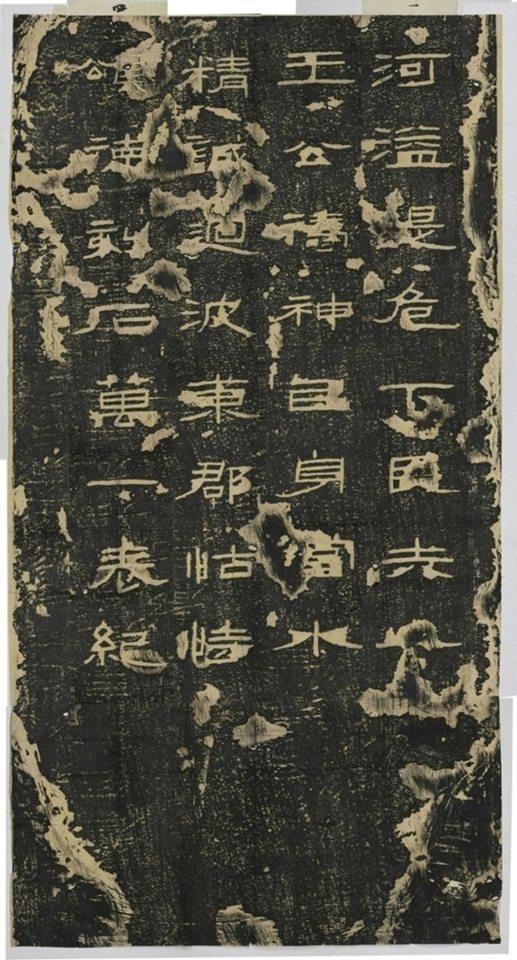 河溢堤危下民去
王公禱神自身當水
精誠迴波東郡怙恃
頌德刻石萬一表紀